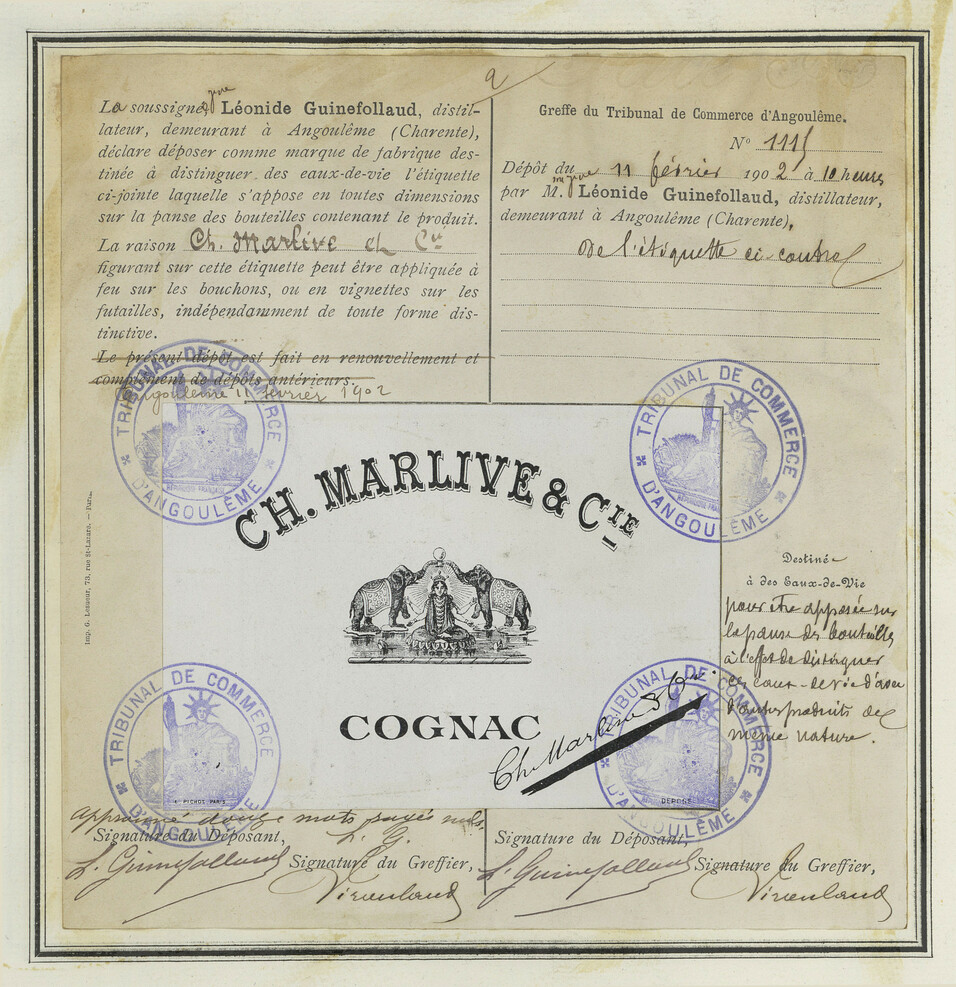 La soussigné, Léonide Guinefollaud, distil-
lateur, demeurant à Angoulême (Charente),
déclare déposer comme marque de fabrique des-
tinée à distinguer des eaux-de-vie l'étiquette
ci-jointe laquelle s'appose en toutes dimensions
sur la panse des bouteilles contenant le produit.
La raison Ch. Marlive et Cie
figurant sur cette étiquette peut être appliquée à
feu sur les bouchons, ou en vignettes sur les
futailles, indépendamment de toute forme dis-
tinctive.
Le présent dépôt est fait en renouvellement et
complément de dépôts antérieurs.
Angoulême 11 février 1902
Greffe du Tribunal de Commerce d'Angoulême.
N° 1115
Dépôt du 11 février 1902 à 10 heures
par M. Léonide Guinefollaud, distillateur,
demeurant à Angoulême (Charente),
De l'étiquette ci-contre
TRIBUNAL DE COMMERCE
D'ANGOULÊME
TRIBUNAL DE COMMERCE
D'ANGOULÊME
RÉPUBLIQUE FRANÇAISE
CH. MARLIVE & CIE
COGNAC
Ch. Marlive & Cie
Imp. G. Lesueur, 73, rue St-Lazare. — Paris.
Destinée
à des Eaux-de-Vie
pour être apposée sur
la panse des bouteilles
à l'effet de distinguer
ces eaux-de-vie d'avec
d'autres produits de
même nature.
TRIBUNAL DE COMMERCE
D'ANGOULÊME
PICHOT PARIS
TRIBUNAL DE COMMERCE
D'ANGOULÊME
DÉPOSÉ
approuvé douze mots rayés nuls.
L. G.
Signature du Déposant,
L. Guinefollaud
Signature du Greffier,
Signature du Déposant,
L. Guinefollaud
Signature du Greffier,